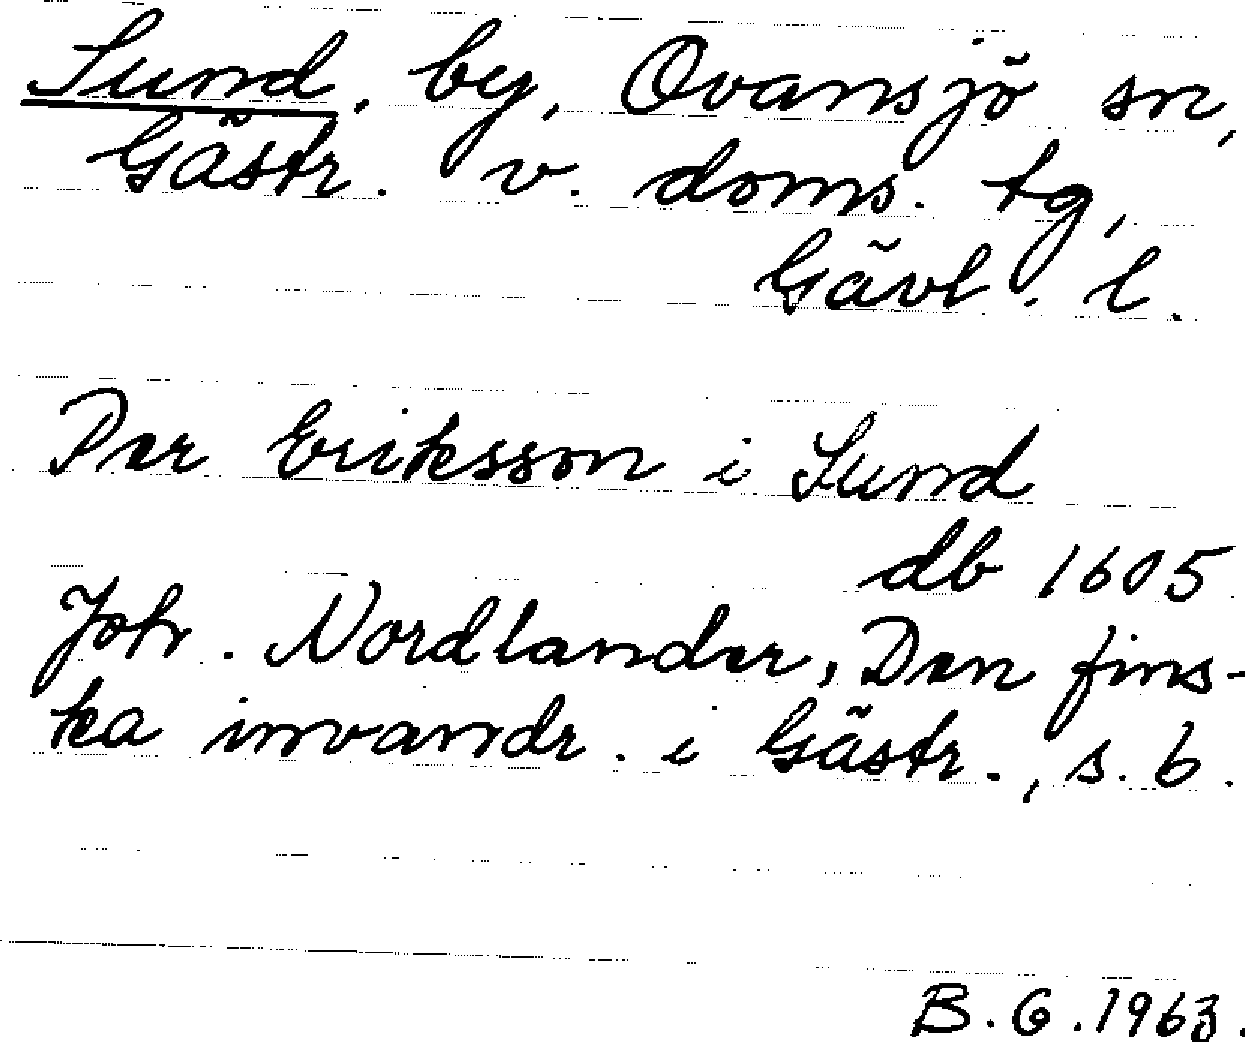 Sund, by, Ovansjö sn,
Gästr. v. doms. tg,
Gävl. l.
Per Eriksson i Sund
db 1605
Joh. Nordlander, Den fins-
ka invandr. i Gästr., s. 6.
B. G. 1963.